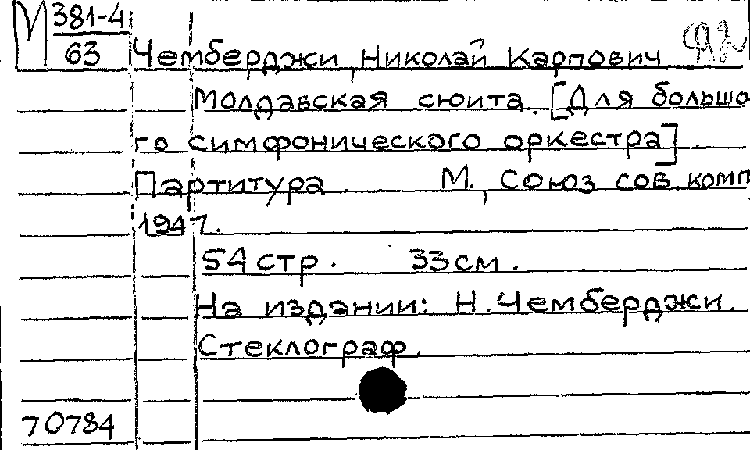 М 381-4
63
Чемберджи, Николай Карпович
Молдавская сюита. [Для большо
го симфонического оркестра]
Партитура М., Союз сов. комп
1947.
54 стр. 33 см.
На издании: Н. Чемберджи.
Стеклограф.
70784